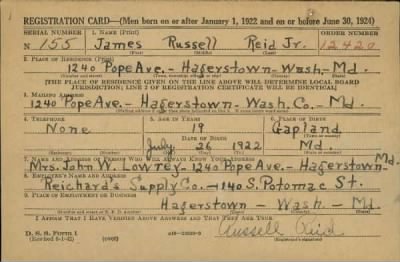 REGISTRATION CARD—(Men born on or after January 1, 1922 and on or before June 30, 1924)
SERIAL NUMBER 1. NAME (Print) ORDER NUMBER
N 155 James Russell Reid Jr. 12420
(First) (Middle) (Last)
2. PLACE OF RESIDENCE (Print)
1240 Pope Ave. - Hagerstown - Wash - Md.
(Number and street) (Town, township, village, or city) (County) (State)
[THE PLACE OF RESIDENCE GIVEN ON THE LINE ABOVE WILL DETERMINE LOCAL BOARD
JURISDICTION; LINE 2 OF REGISTRATION CERTIFICATE WILL BE IDENTICAL]
3. MAILING ADDRESS
1240 Pope Ave. - Hagerstown - Wash. Co. - Md.
4. TELEPHONE 5. AGE IN YEARS 6. PLACE OF BIRTH
None 19 Gapland
DATE OF BIRTH
July 26 1922 Md.
7. NAME AND ADDRESS OF PERSON WHO WILL ALWAYS KNOW YOUR ADDRESS
Mrs. John W. Lowrey - 1240 Pope Ave. - Hagerstown - Md.
8. EMPLOYER'S NAME AND ADDRESS
Reichard's Supply Co. - 140 S. Potomac St.
9. PLACE OF EMPLOYMENT OR BUSINESS
Hagerstown - Wash - Md.
(Number and street or R. F. D. number) (Town) (County) (State)
I AFFIRM THAT I HAVE VERIFIED ABOVE ANSWERS AND THAT THEY ARE TRUE.
D. S. S. Form 1
Russell Reid
(Registrant's signature)